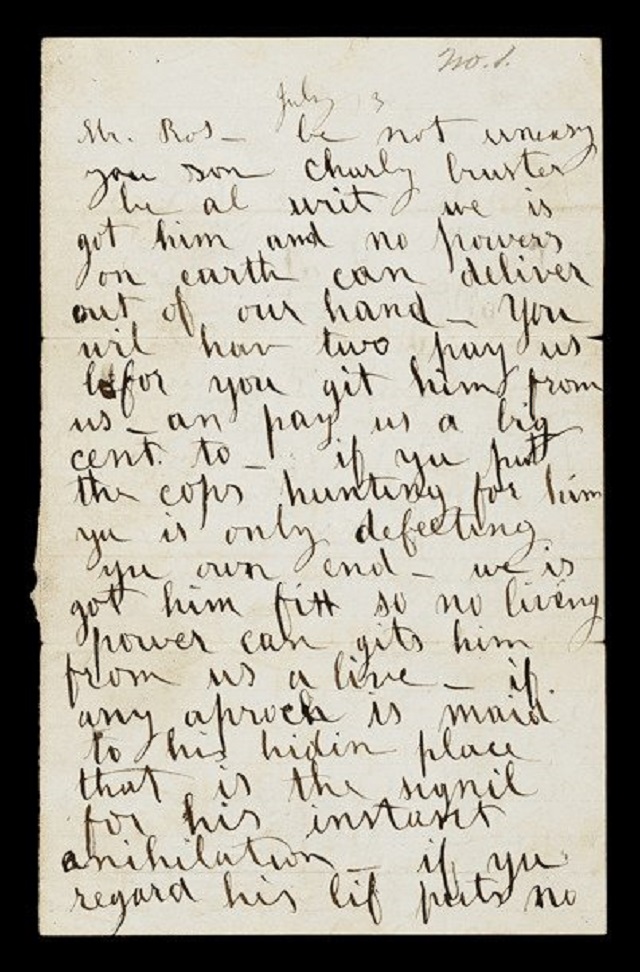 No. 1.
July 3
Mr. Ros— be not uneasy
you son charly bruster
be al writ we is
got him and no powers
on earth can deliver
out of our hand — You
wil hav two pay us
befor you git him from
us — an pay us a big
cent to — if yu put
the cops hunting for him
yu is only defeeting
yu own end — we is
got him fitt so no living
power can gits him
from us a live — if
any aproch is maid
to his hidin place
that is the signil
for his instant
anihilation — if yu
regard his lif puts no